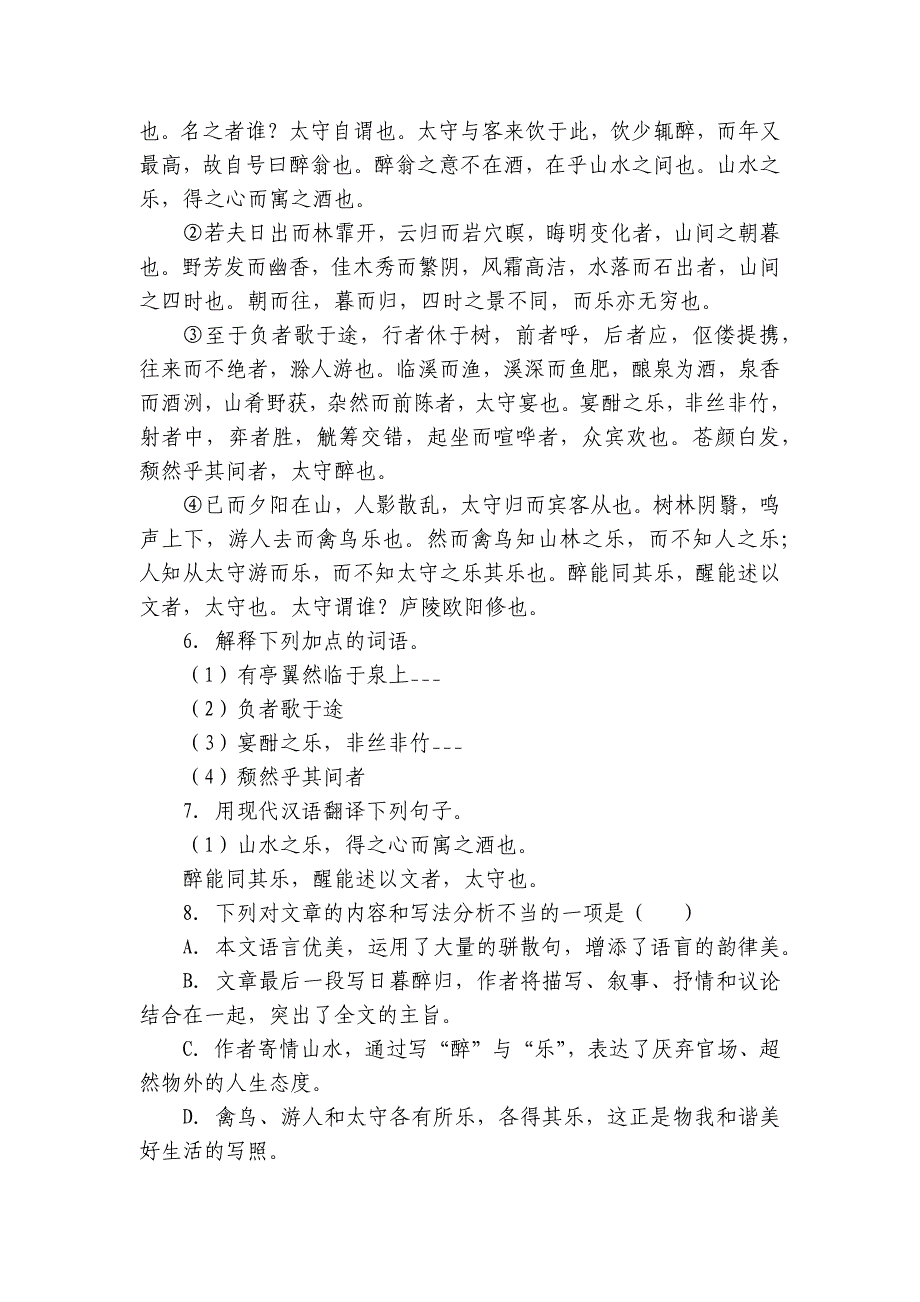 也。名之者谁？太守自谓也。太守与客来饮于此，饮少辄醉，而年又
最高，故自号曰醉翁也。醉翁之意不在酒，在乎山水之间也。山水之
乐，得之心而寓之酒也。
②若夫日出而林霏开，云归而岩穴暝，晦明变化者，山间之朝暮
也。野芳发而幽香，佳木秀而繁阴，风霜高洁，水落而石出者，山间
之四时也。朝而往，暮而归，四时之景不同，而乐亦无穷也。
③至于负者歌于途，行者休于树，前者呼，后者应，伛偻提携，
往来而不绝者，滁人游也。临溪而渔，溪深而鱼肥，酿泉为酒，泉香
而酒洌，山肴野荻，杂然而前陈者，太守宴也。宴酣之乐，非丝非竹，
射者中，弈者胜，觥筹交错，起坐而喧哗者，众宾欢也。苍颜白发，
颓然乎其间者，太守醉也。
④已而夕阳在山，人影散乱，太守归而宾客从也。树林阴翳，鸣
声上下，游人去而禽鸟乐也。然而禽鸟知山林之乐，而不知人之乐；
人知从太守游而乐，而不知太守之乐其乐也。醉能同其乐，醒能述以
文者，太守也。太守谓谁？庐陵欧阳修也。
6．解释下列加点的词语。
（1）有亭翼然临于泉上___
（2）负者歌于途
（3）宴酣之乐，非丝非竹___
（4）颓然乎其间者
7．用现代汉语翻译下列句子。
（1）山水之乐，得之心而寓之酒也。
醉能同其乐，醒能述以文者，太守也。
8．下列对文章的内容和写法分析不当的一项是（　　）
A．本文语言优美，运用了大量的骈散句，增添了语盲的韵律美。
B．文章最后一段写日暮醉归，作者将描写、叙事、抒情和议论
结合在一起，突出了全文的主旨。
C．作者寄情山水，通过写“醉”与“乐”，表达了厌弃官场、超
然物外的人生态度。
D．禽鸟、游人和太守各有所乐，各得其乐，这正是物我和谐美
好生活的写照。